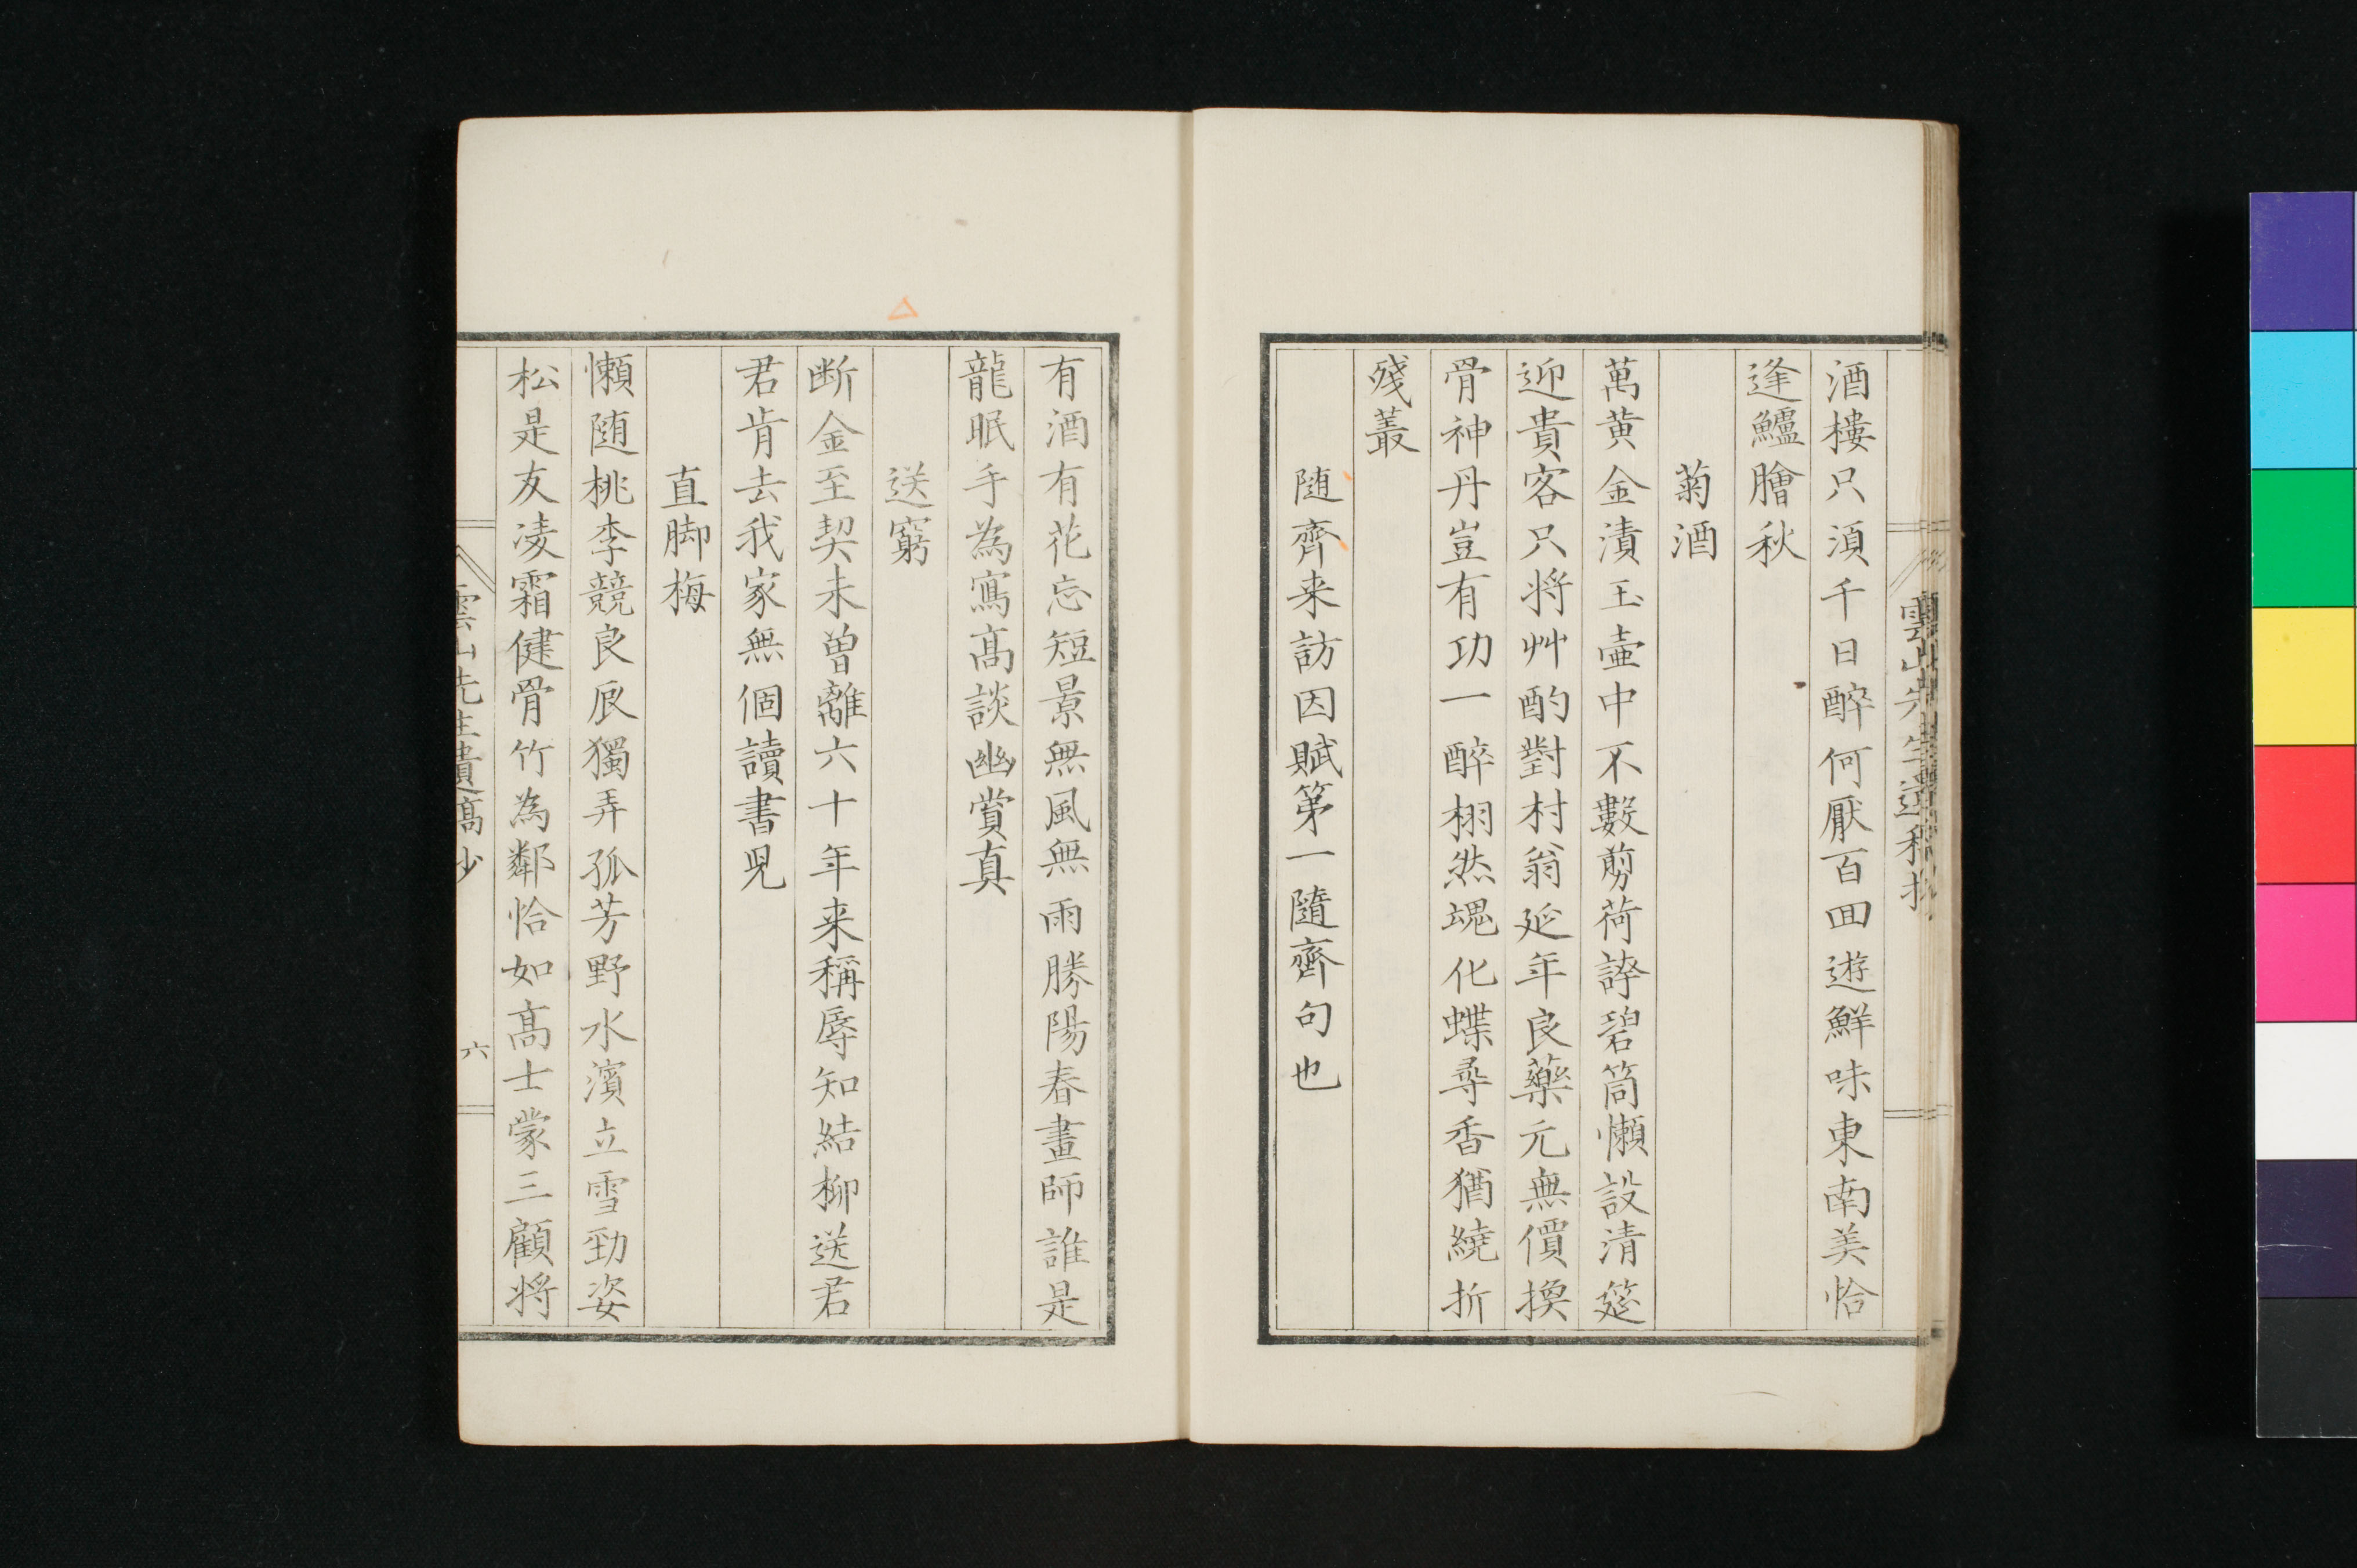 酒樓只須千日醉何厭百囬遊鮮味東南美恰
逢鱸膾秋
菊酒
萬黄金漬玉壷中不數剪荷誇碧筒懶設清筵
迎貴客只将艸酌對村翁延年良藥元無價換
骨神丹豈有功一醉栩然魂化蝶尋香猶繞折
殘叢
随齊来訪因賦第一隨齊句也
有酒有花忘短景無風無雨勝陽春畫師誰是
龍眠手為寫髙談幽賞真
送窮
断金至契未曽離六十年来稱辱知結柳送君
君肯去我家無個讀書児
直脚梅
懶随桃李競良辰獨弄孤芳野水濱立雪勁姿
松是友凌霜健骨竹為鄰恰如髙士蒙三顧将
雲山先生遺髙少
六